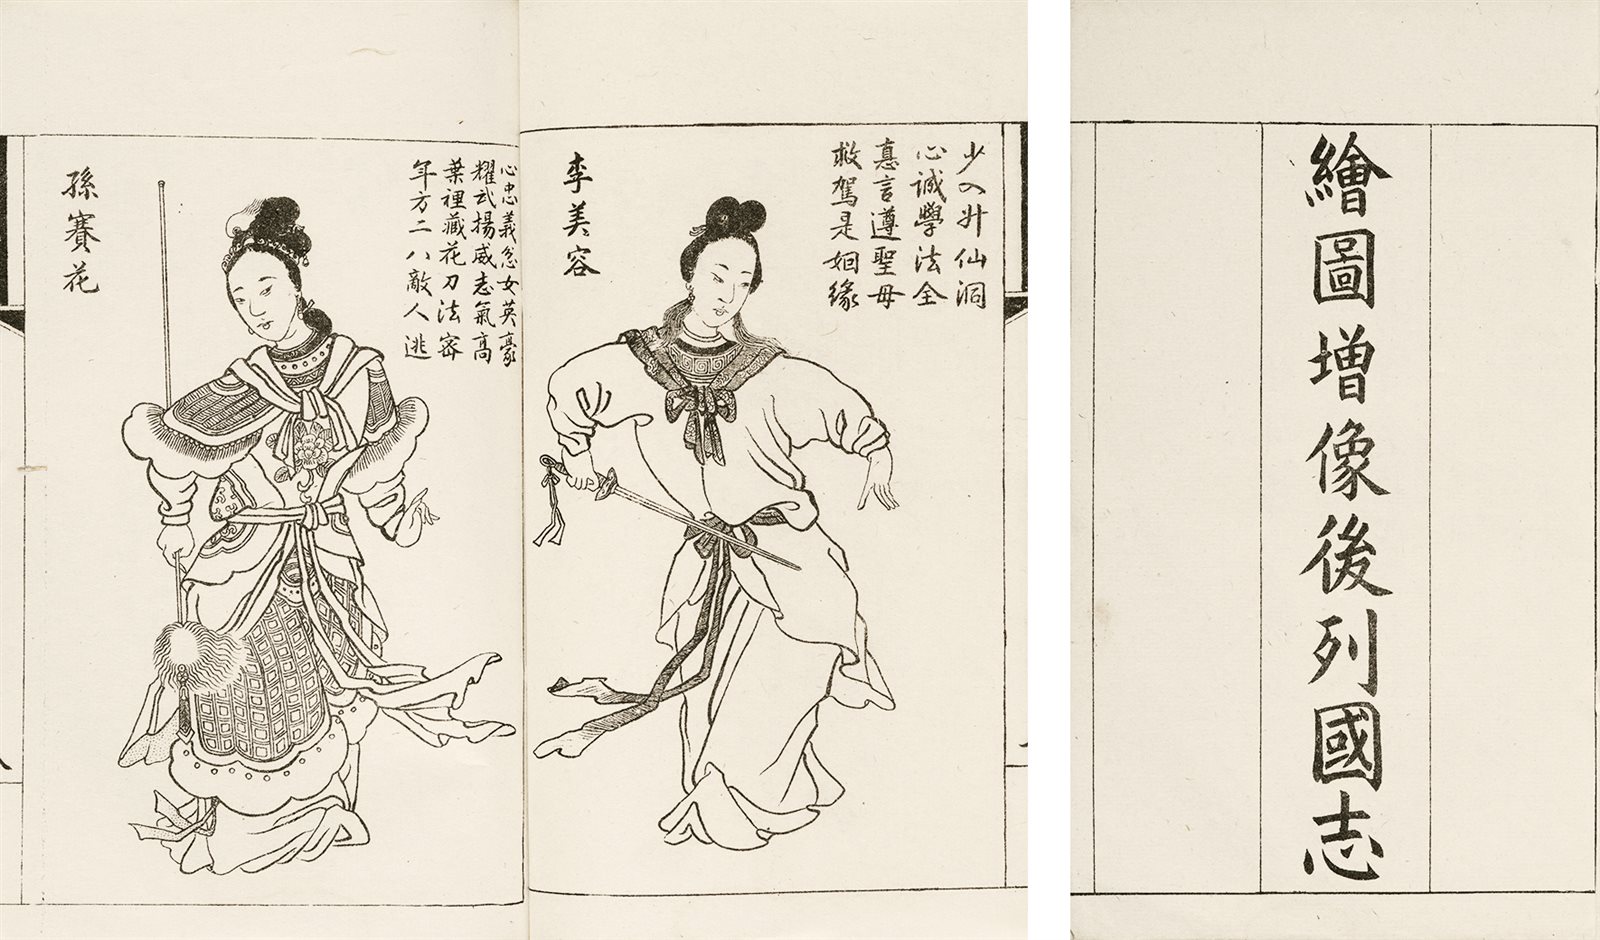 繪圖增像後列國志
少入升仙洞
心誠學法全
惪言遵聖母
救駕是姻緣
李美容
心忠義忿女英豪
耀武揚威志氣高
葉裡藏花刀法密
年方二八敵人逃
孫賽花